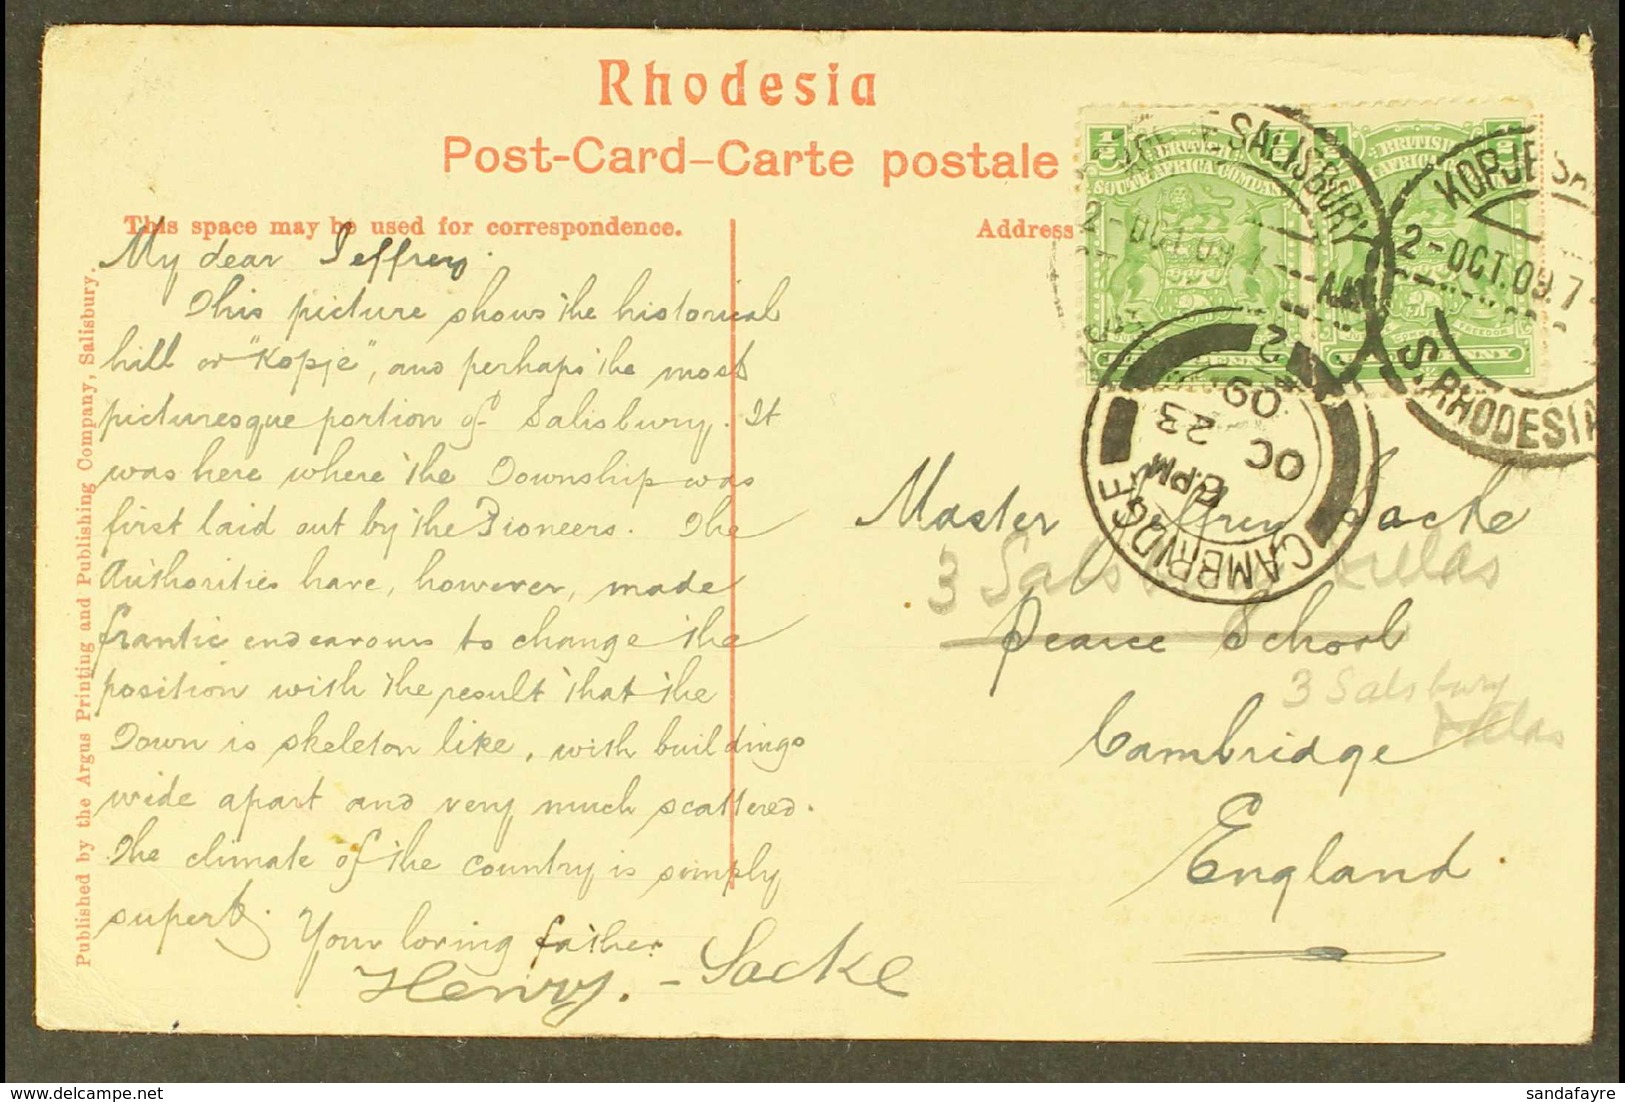 Rhodesia
Post-Card–Carte postale
This space may be used for correspondence.
Address
Published by the Argus Printing and Publishing Company, Salisbury.
My dear Jeffrey.
This picture shows the historical
hill or "Kopje", and perhaps the most
picturesque portion of Salisbury. It
was here where the Township was
first laid out by the Pioneers. The
Authorities have, however, made
frantic endeavours to change the
position with the result that the
Town is skeleton like, with buildings
wide apart and very much scattered.
The climate of the country is simply
superb. Your loving father
Henry. - Sacke
BRITISH
SOUTH AFRICA COMPANY
BRITISH
SALISBURY
2-OCT.09
KOPJE SA
2-OCT.09.7
S. RHODESIA
CAMBRIDGE
6 PM
OC 23
09
2
Master Jeffrey Sacke
3 Salsbury Villas
Pearce School
3 Salsbury
Villas
Cambridge
England
sandafayre